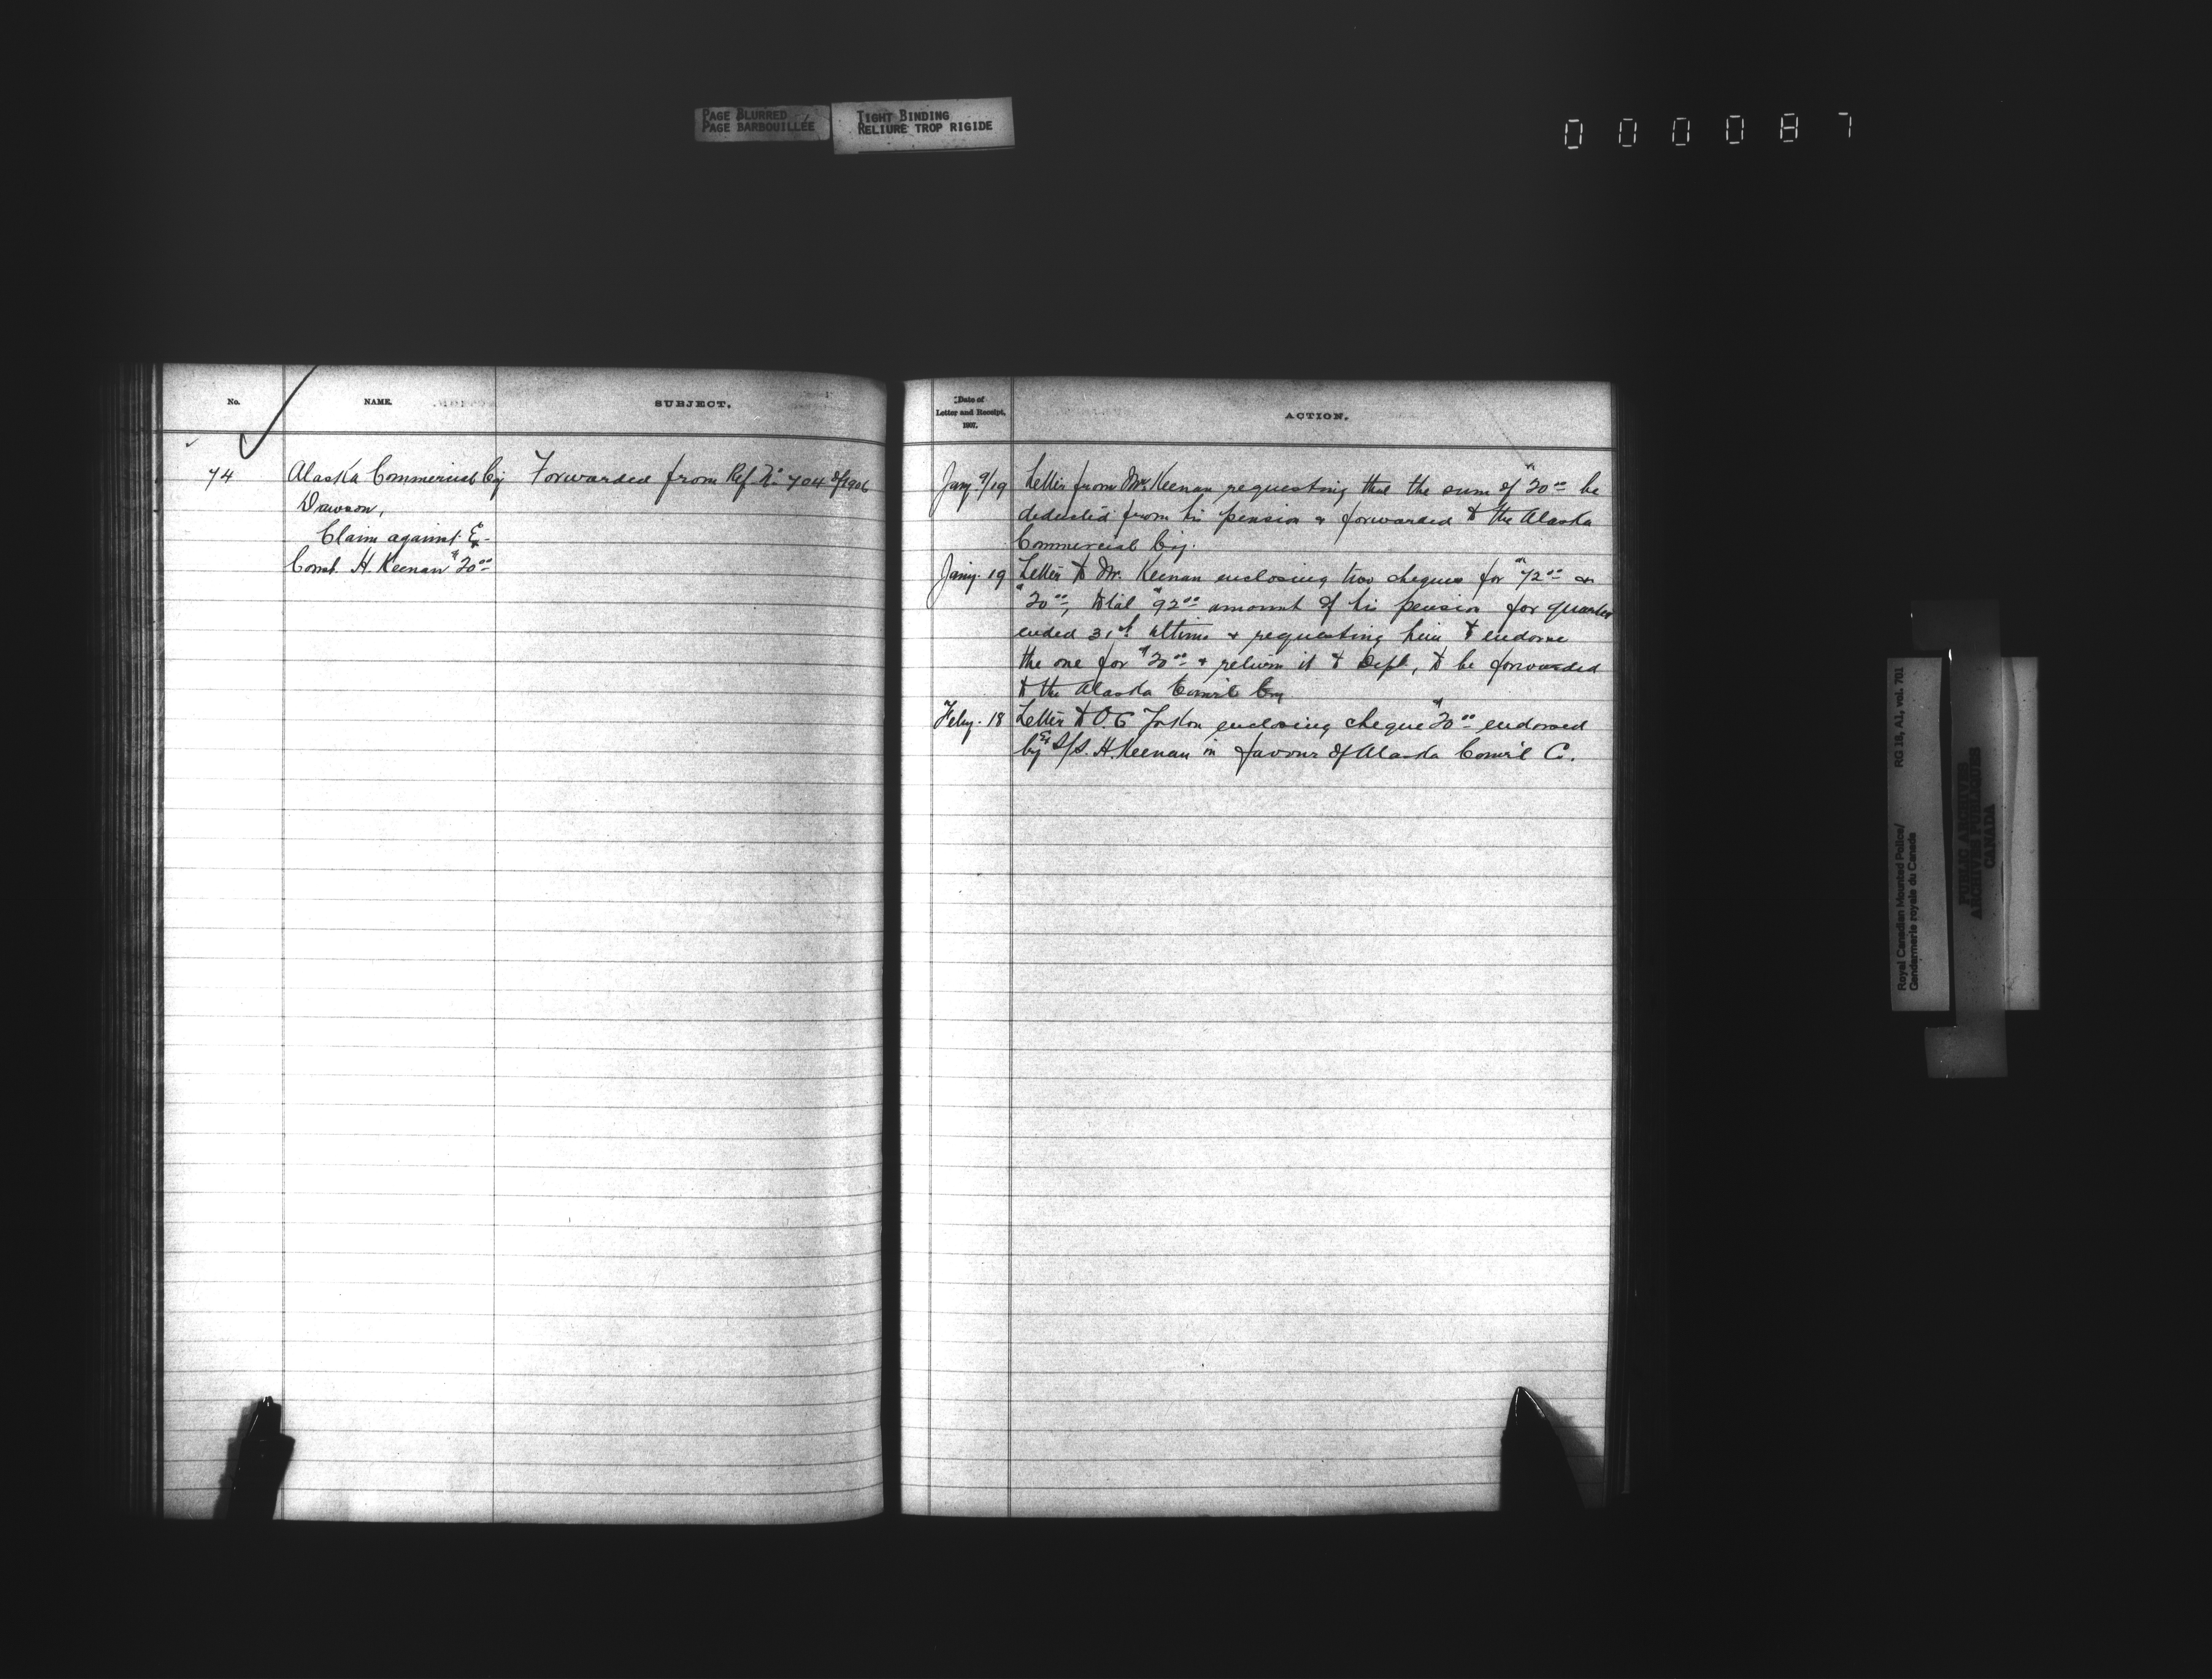 PAGE BLURRED
PAGE BARBOUILLÉE
TIGHT BINDING
RELIURE TROP RIGIDE
000087
No.
NAME.
SUBJECT.
74
Alaska Commercial Coy
Dawson,
Claim against Ex-
Const. H. Keenan $20.00
Forwarded from Ref. No. 704 of 1906
Date of
Letter and Receipt,
1907.
ACTION.
Jany. 9/19 Letter from Mr. Keenan requesting that the sum of $20.00 be
deducted from his pension & forwarded to the Alaska
Commercial Coy.
Jany. 19 Letter to Mr. Keenan enclosing two cheques for $72.00 &
$20.00, total $92.00 amount of his pension for quarter
ended 31st ultimo & requesting him to endorse
the one for $20.00 & return it to Dept, to be forwarded
to the Alaska Com'cl Coy
Feby. 18 Letter to O.C. enclosing cheque $20.00 endorsed
by Ex S/S. H. Keenan in favour of Alaska Com'cl C.
Royal Canadian Mounted Police/
Gendarmerie royale du Canada
RG 18, A1, vol. 701
PUBLIC ARCHIVES
ARCHIVES PUBLIQUES
CANADA